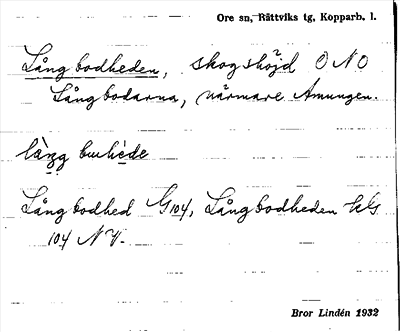 Ore sn, Rättviks tg, Kopparb. l.
Långbodheden, skogshöjd ONO
Långbodarna, närmare Amungen.
làng buhède
Långbodhed G104, Långbodheden kls
104 NV.
Bror Lindén 1932